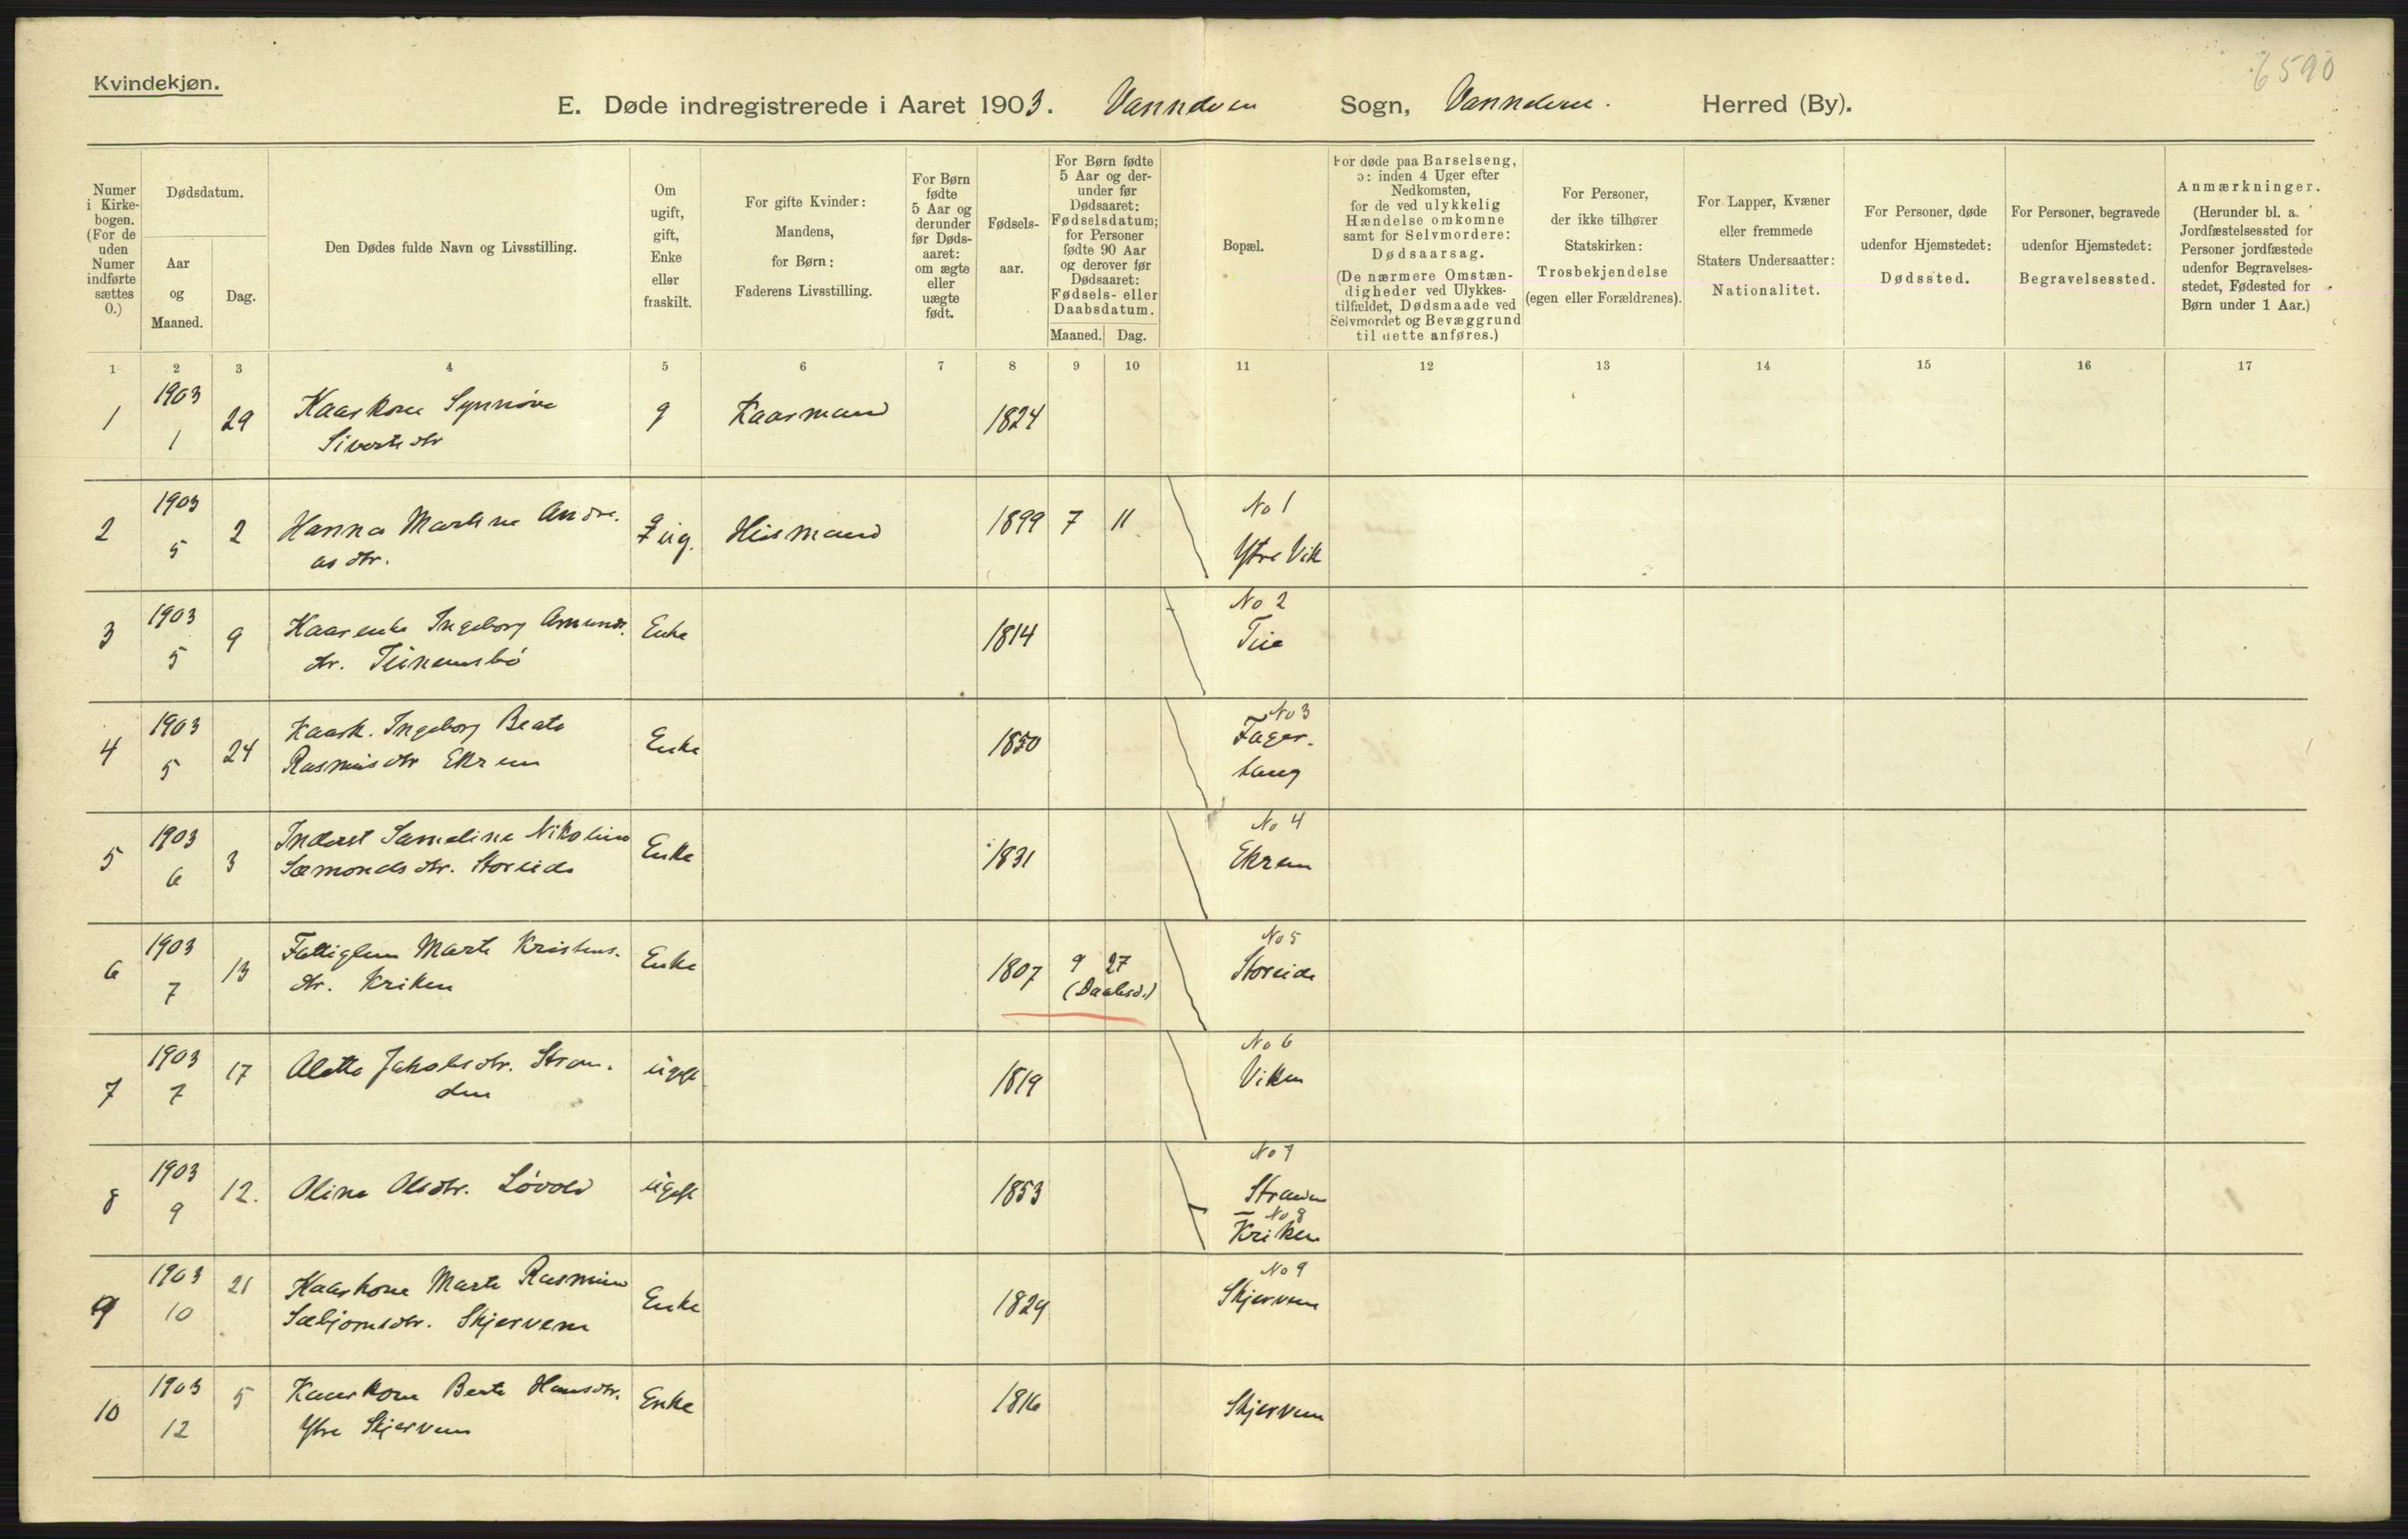 6590
Kvindekjøn.
E. Døde indregistrerede i Aaret 1903. Vannelven Sogn, Vannelven. Herred (By).
Numer i Kirkebogen. (For de uden Numer indførte sættes 0.)
Dødsdatum.
Aar og Maaned.
Dag.
Den Dødes fulde Navn og Livsstilling.
Om ugift, gift, Enke eller fraskilt.
For gifte Kvinder: Mandens, for Børn: Faderens Livsstilling.
For Børn fødte 5 Aar og derunder før Dødsaaret: om ægte eller uægte født.
Fødsels-aar.
For Børn fødte 5 Aar og derunder før Dødsaaret: Fødselsdatum; for Personer fødte 90 Aar og derover før Dødsaaret: Fødsels- eller Daabsdatum.
Maaned. Dag.
Bopæl.
For døde paa Barselseng, ɔ: inden 4 Uger efter Nedkomsten, for de ved ulykkelig Hændelse omkomne samt for Selvmordere: Dødsaarsag. (De nærmere Omstændigheder ved Ulykkestilfældet, Dødsmaade ved Selvmordet og Bevæggrund til dette anføres.)
For Personer, der ikke tilhører Statskirken: Trosbekjendelse (egen eller Forældrenes).
For Lapper, Kvæner eller fremmede Staters Undersaatter: Nationalitet.
For Personer, døde udenfor Hjemstedet: Dødssted.
For Personer, begravede udenfor Hjemstedet: Begravelsessted.
Anmærkninger. (Herunder bl. a. Jordfæstelsessted for Personer jordfæstede udenfor Begravelsesstedet, Fødested for Børn under 1 Aar.)
1 2 3 4 5 6 7 8 9 10 11 12 13 14 15 16 17
1 1903 1 29 Kaarkone Synnøve g Kaarmand 1824
Sivertsdtr
2 1903 5 2 Hanna Martine Andre. ug. Husmand 1899 7 11 No 1
asdtr. Ytre Vik
3 1903 5 9 Kaarenke Ingeborg Amunds. Enke 1814 No 2
dtr. Tue
4 1903 5 24 Kaark. Ingeborg Beate Enke 1850 No 3
Rasmusdtr Ekrem Fager.
haug
5 1903 6 3 Inderst Nikoline Enke 1831 No 4
Sæmondsdtr. Storeide Ekrem
6 1903 7 13 Fattiglem Marte Kristens. Enke 1807 9 27 No 5
dtr. Kriken (Daabsd.) Storeide
7 1903 7 17 Alette Jakobsdtr. Stran. ugift 1819 No 6
den Viken
8 1903 9 12. Oline Olsdtr. Løvold ugift 1853 No 7
Stranden
No 8
Kriken
9 1903 10 21 Kaarkone Marte Rasmine Enke 1829 No 9
Sæbjørnsdtr. Skjervem Skjervem
10 1903 12 5 Kaarkone Berte Hansdtr. Enke 1816 Skjervem
Ytre Skjervem